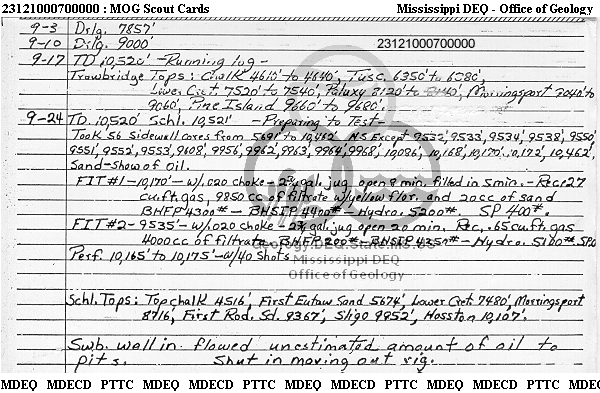 23121000700000 : MOG Scout Cards Mississippi DEQ - Office of Geology
9-3 Drlg. 7857'
9-10 Drlg. 9000' 23121000700000
9-17 TD 10,520' - Running log -
Trowbridge Tops: Chalk 4610' to 4640', Tusc. 6350' to 6380',
Lower Cret 7520' to 7540', Paluxy 8120' to Mooringsport 9040' to
9060', Pine Island 9660' to 9680'.
9-24 TD. 10,520' Schl. 10,521' - Preparing to Test-
Took 56 Sidewall cores from 5691' to 10,462' NS Except 9532', 9533', 9534', 9538', 9550'
9551', 9552', 9553', 9608', 9956', 9962', 9963', 9964', 9968', 10,086', 10,168', 10,170', 10,172', 10,462',
Sand-Show of oil.
FIT #1 - 10,170' - w/.020 choke - 2¾ gal. jug open 8 min. filled in 5 min. - Rec 27
cu.ft. gas, 9850 cc of filtrate w/yellow flor. and 20 cc of sand
BHFP 4300# - BHSIP 4400# - Hydro. 5200#. SP 400#.
FIT #2 - 9535' - w/.020 choke - 2¾ gal. jug open 20 min. Rec. .65 cu.ft. gas
4000 cc of filtrate. BHFP 200# - BHSIP 4350# - Hydro. 5100# SP0
Geology.DEQ.State.MS.US
Perf. 10,165' to 10,175' - w/40 shots
Mississippi DEQ
Office of Geology
Schl. Tops: Top chalk 4516', First Eutaw Sand 5674', Lower Cret 7480', Mooringsport
8716', First Rod. Sd. 9367', Sligo 9952', Hosston 10,107'.
Swb. well in. flowed unestimated amount of oil to
pits. Shut in moving out rig.
MDEQ MDECD PTTC MDEQ MDECD PTTC MDEQ MDECD PTTC MDEQ MDECD PTTC MDEQ MDEC